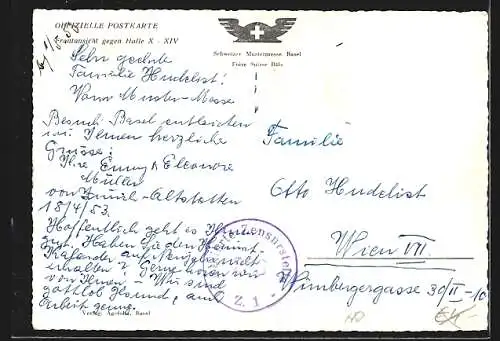 OFFIZIELLE POSTKARTE
Frontansicht gegen Halle X - XIV
Schweizer Mustermesse Basel
Foire Suisse Bâle
Sehr geehrte
Familie Hudelist!
Vom Muster-Messe
Besuch Basel entbieten
wir Ihnen herzliche
Grüsse:
Ihre Emmy & Eleonore
Müller
von Zürich-Altstetten
18/4/53.
Hoffentlich geht es Ihnen
gut. Haben Sie den Heimat-
Kalender auf Neujahr
erhalten? Gerne hören wir
von Ihnen - Wir sind
gottlob gesund, und
Arbeit genug.
Familie
Otto Hudelist
Wien VII.
Wimbergergasse 30/II-10
Z. 1
Basel